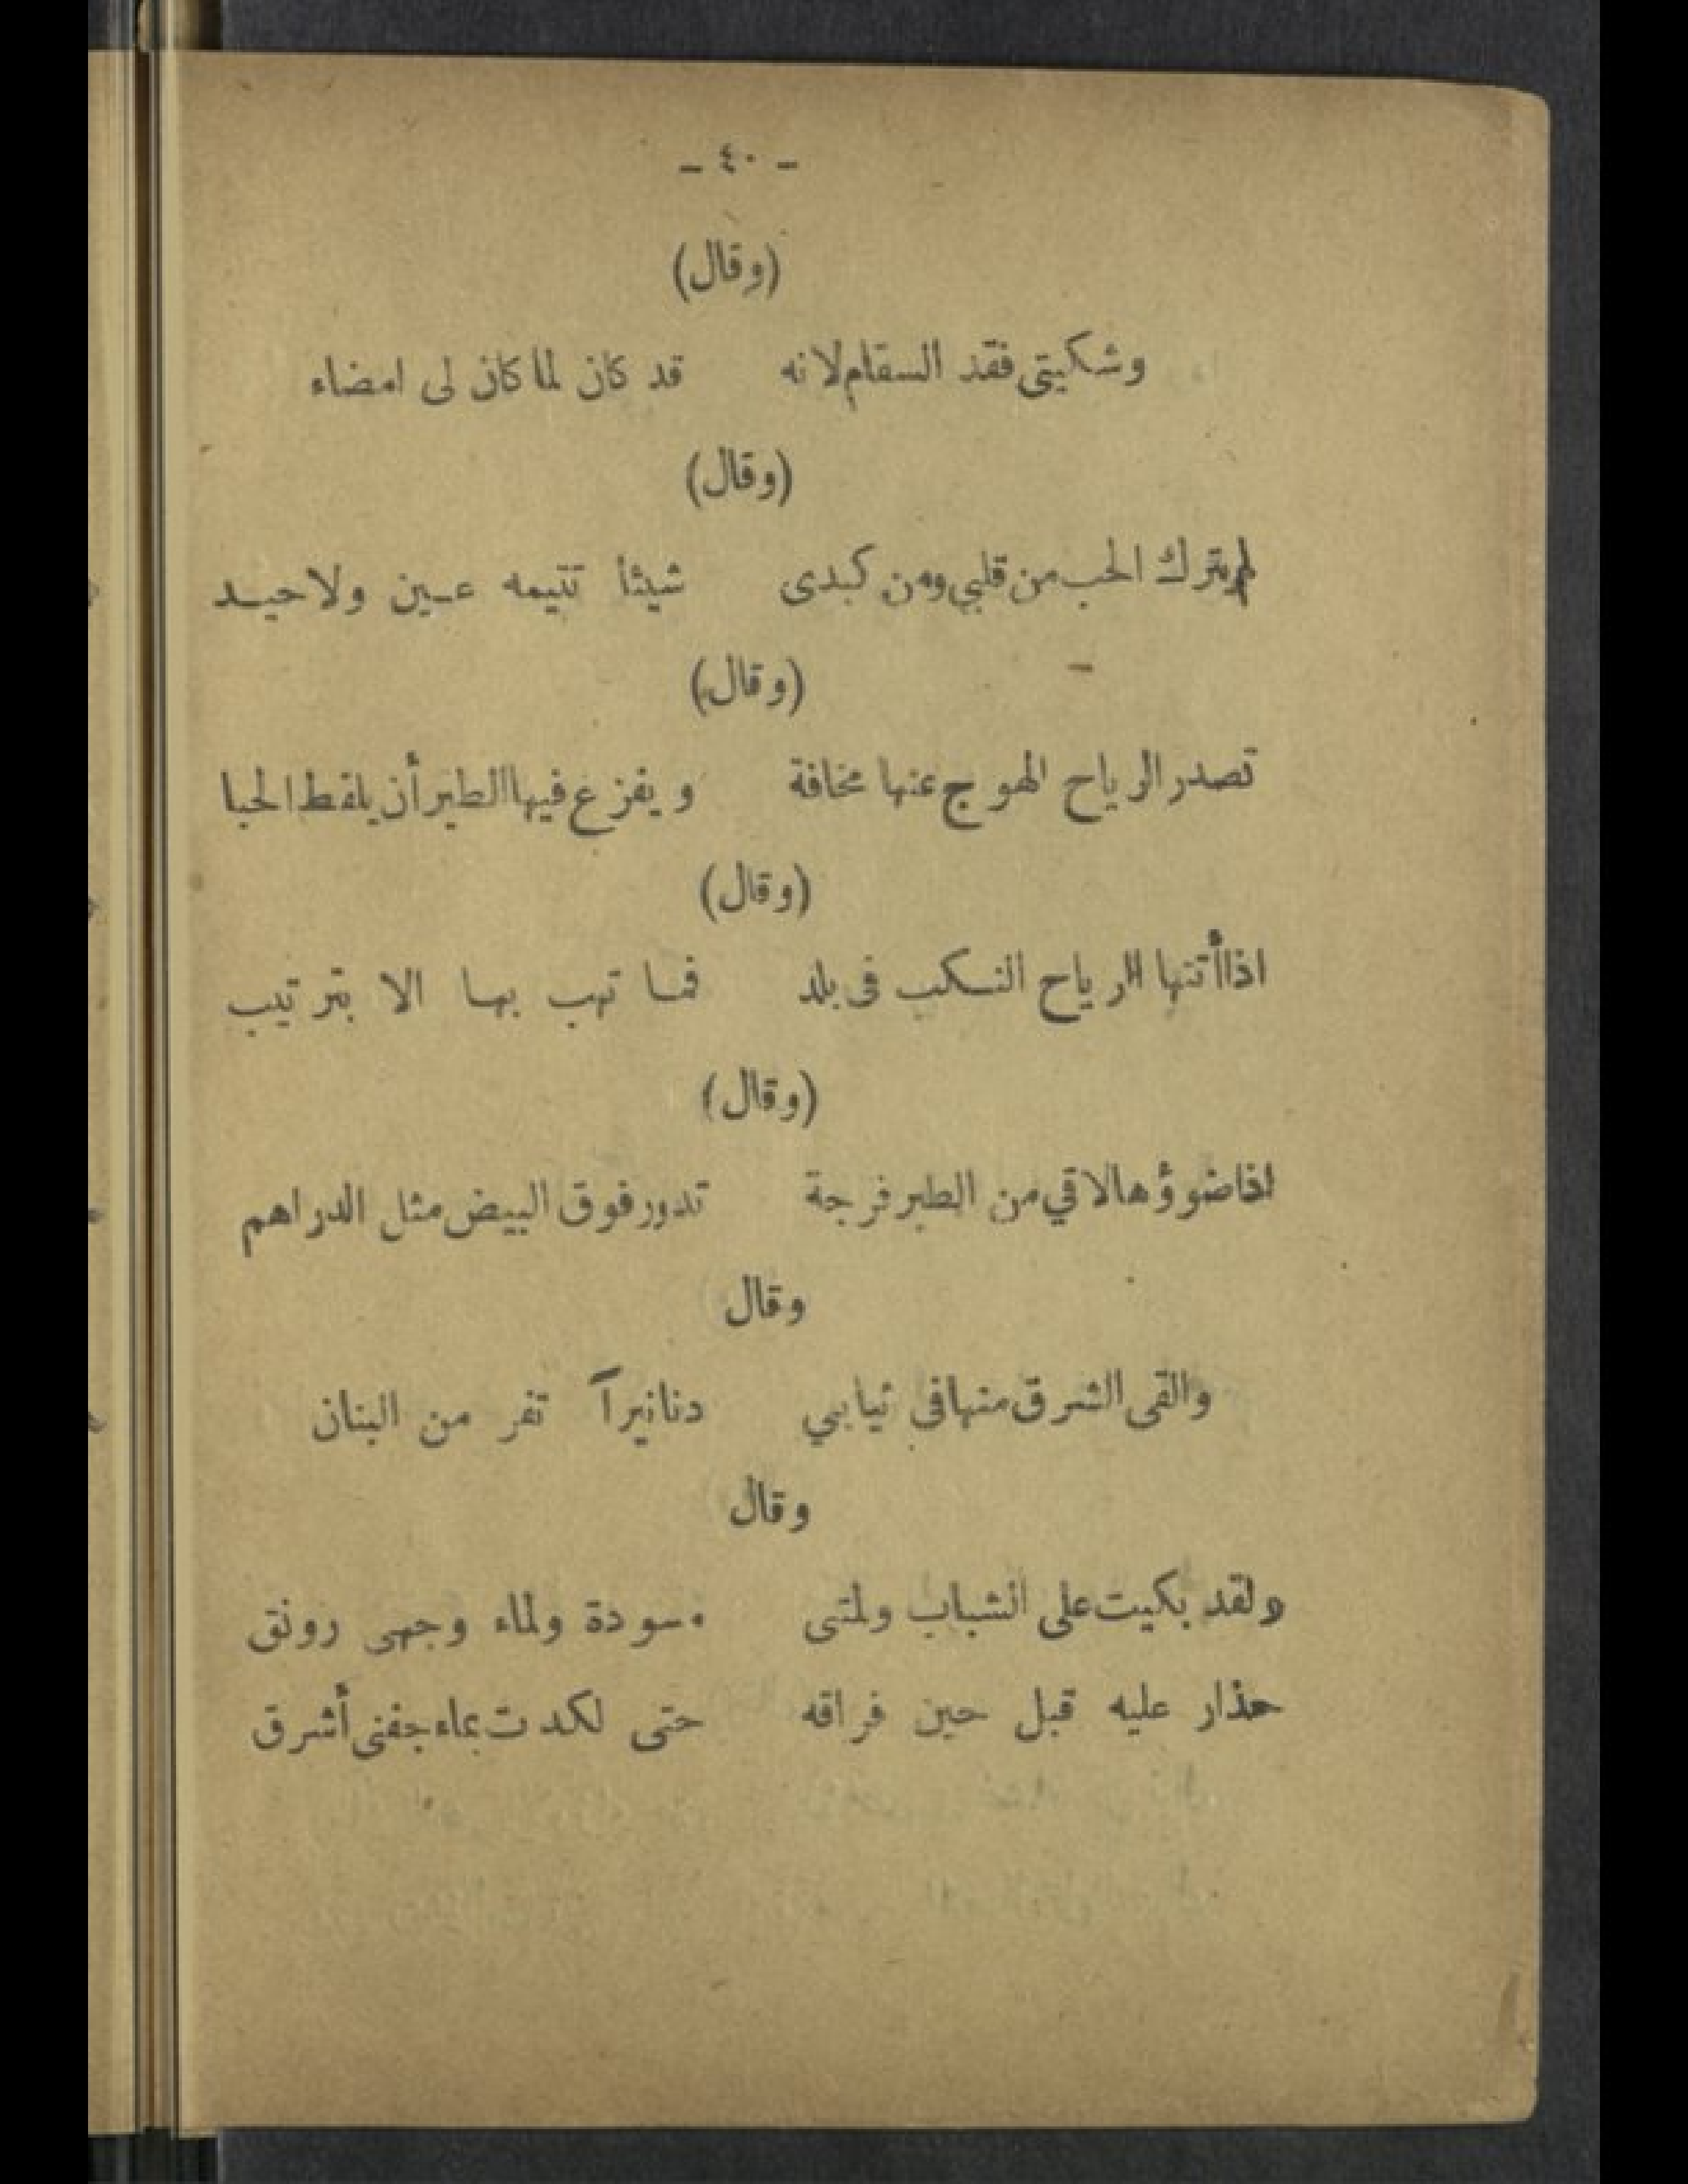 - ٤٠ -
(وقال)
وشكيتى فقد السقام لانه قد كان لما كان لى امضاء
(وقال)
لم يترك الحب من قلبي ومن كبدى شيئا تتيمه عين ولا حيد
(وقال)
تصدر الرياح الهوج عنها مخافة ويفزع فيها الطير أن يلقط الحبا
(وقال)
اذا أتتها الرياح النكب فى بلد فما تهب بها الا بترتيب
(وقال)
اذا ضوؤها لاقي من الطير فرجة تدور فوق البيض مثل الدراهم
وقال
والقى الشرق منها في ثيابي دنانيراً تفر من البنان
وقال
ولقد بكيت على الشباب ولمتى مسودة ولماء وجهى رونق
حذار عليه قبل حين فراقه حتى لكدت بماء جفنى أشرق